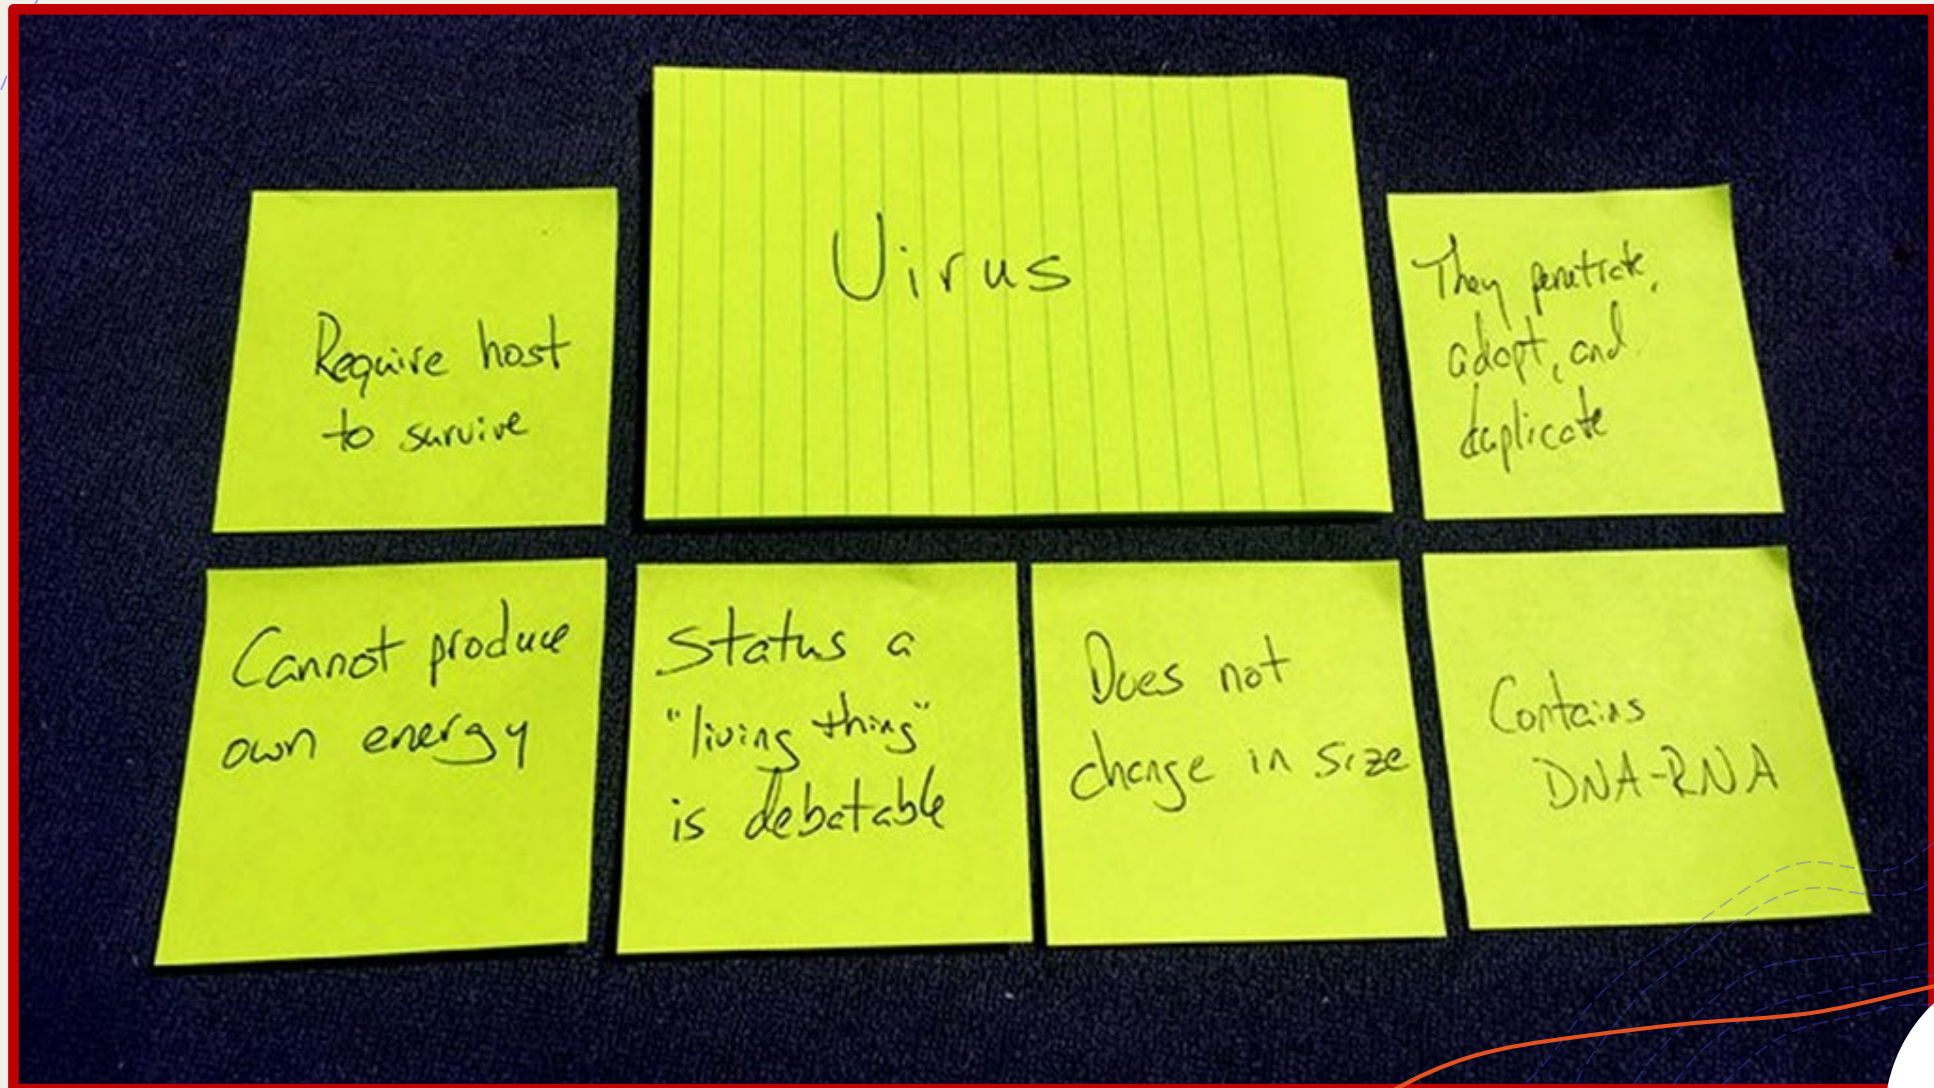 Virus
Require host
to survive
They penetrate,
adopt, and
duplicate
Cannot produce
own energy
Status a
"living thing"
is debatable
Does not
change in size
Contains
DNA-RNA